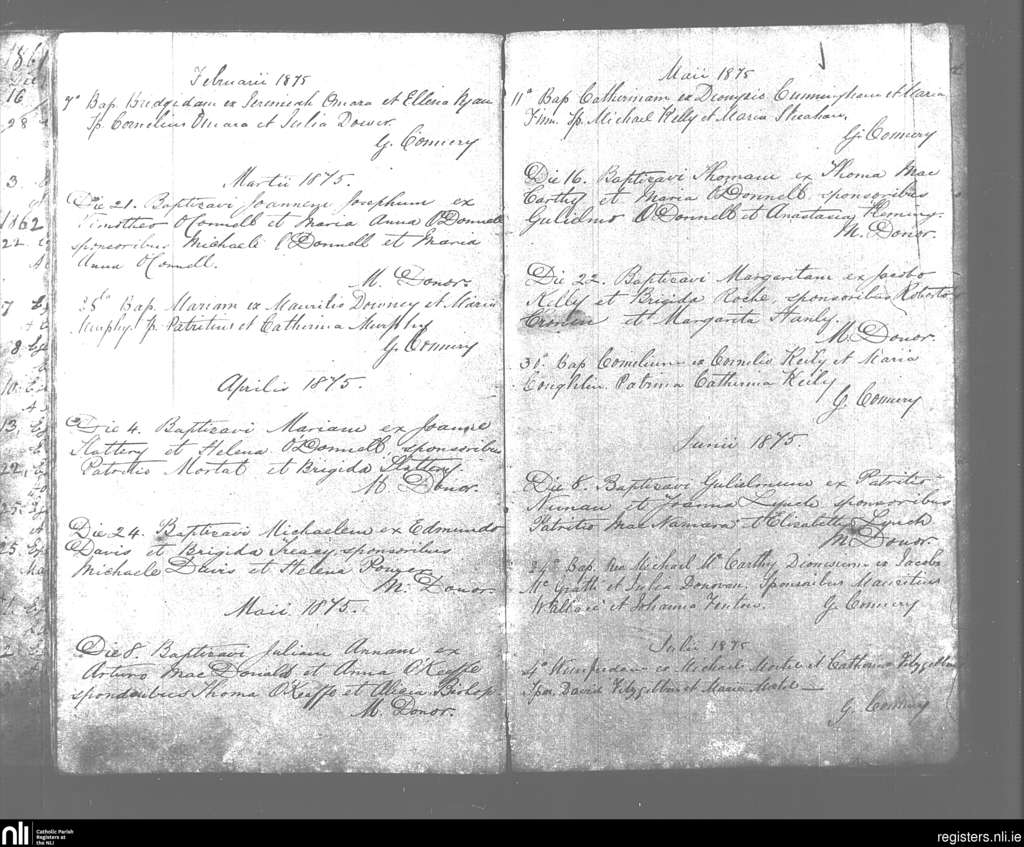 Februarii 1875
7a Bap. Bridgidam ex Jeremiah Omara et Ellena Ryan
Sp. Cornelius Omara et Julia Dower.
G. Connery
Martii 1875.
Die 21. Baptizavi Joannem Josephum ex
Timotheo O'Connell et Maria Anna O'Donnell
sponsoribus Michaele O'Donnell et Maria
Anna O'Connell.
M. Donor.
Bap. Mariam ex Mauritio Downey et Maria
Murphy Sp. Patritius et Catherina Murphy
G. Connery
Aprilis 1875.
Die 4. Baptizavi Mariam ex Joanne
Slattery et Helena O'Donnell, sponsoribus
Patritio et Brigida Slattery.
M Donor.
Die 24. Baptizavi Michaelem ex Edmundo
Davis et Brigida Treacy, sponsoribus
Michaele Davis et Helena Power
M. Donor.
Maii 1875.
Die 8. Baptizavi Juliam Annam ex
Arturo Mac Donald et Anna O'Keeffe
Thoma O'Keeffe et Alicia Bishop
M. Donor.
Maii 1875
11a Bap Catherinam ex Dionysio Cunningham et Maria
Finn. Sp. Michael Kelly et Maria Sheahan.
G. Connery
Die 16. Baptizavi Thomam ex Thoma Mac
Carthy et Maria O'Donnell sponsoribus
Gulielmo O'Donnell et Anastasia Fleming.
M. Donor.
Die 22. Baptizavi Margaritam ex Jacobo
Kelly et Brigida Roche, sponsoribus Roberto
Cronin et Margarita Hanly.
M. Donor.
Bap Cornelium ex Cornelio Keily et Maria
Coughlin. Patrina Catherina Keily
G. Connery
Junii 1875
Die 8. Baptizavi Gulielmum ex Patritio
Nunan et Joanna Lynch sponsoribus
Patritio Mac Namara et Elisabetha Lynch
M. Donor.
24a Bap. Rev Michael Mc Carthy Dionisium ex Jacobo
Mc Grath et Julia Donovan. Sponsoribus Mauritius
Wallace et Johanna Fenton. G. Connery
Julii 1875
ex Michael et Catherina Fitzgibbon
David Fitzgibbon et Maria
G. Connery
nli
Catholic Parish
Registers at
the NLI
registers.nli.ie